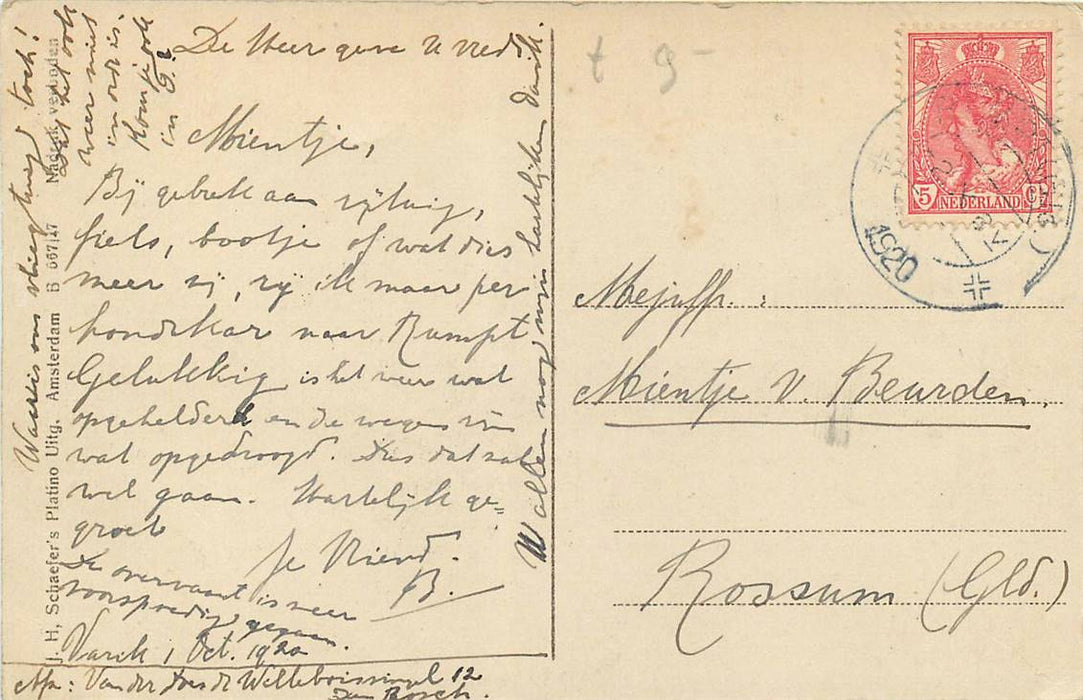 De Heer geve U vrede
Mientje,
Bij gebrek aan rijtuig,
fiets, bootje of wat dies
meer zij, rij ik maar per
hondekar naar Rumpt
Gelukkig is het weer wat
opgehelderd en de wegen zijn
wat opgedroogd. Dus dat zal
wel gaan. Hartelijk ge=
groet
Je Vriend.
B.
De overvaart is weer
voorspoedig gegaan.
Varik 1 Oct. 1920
Afz: Van der Does de Willeboissingel 12
Den Bosch.
Waar is ons vliegtuig toch!
Dat het ook
weer niet
in orde is.
Kom je ook
in
W allen nog mijn hartelijken dank.
J. H. Schaefer's Platino Uitg. Amsterdam B 667|17 Nadruk verboden
t 9 -
5 NEDERLAND Ct
1920
Mejuffr. :
Mientje v. Beurden.
Rossum (Gld.)